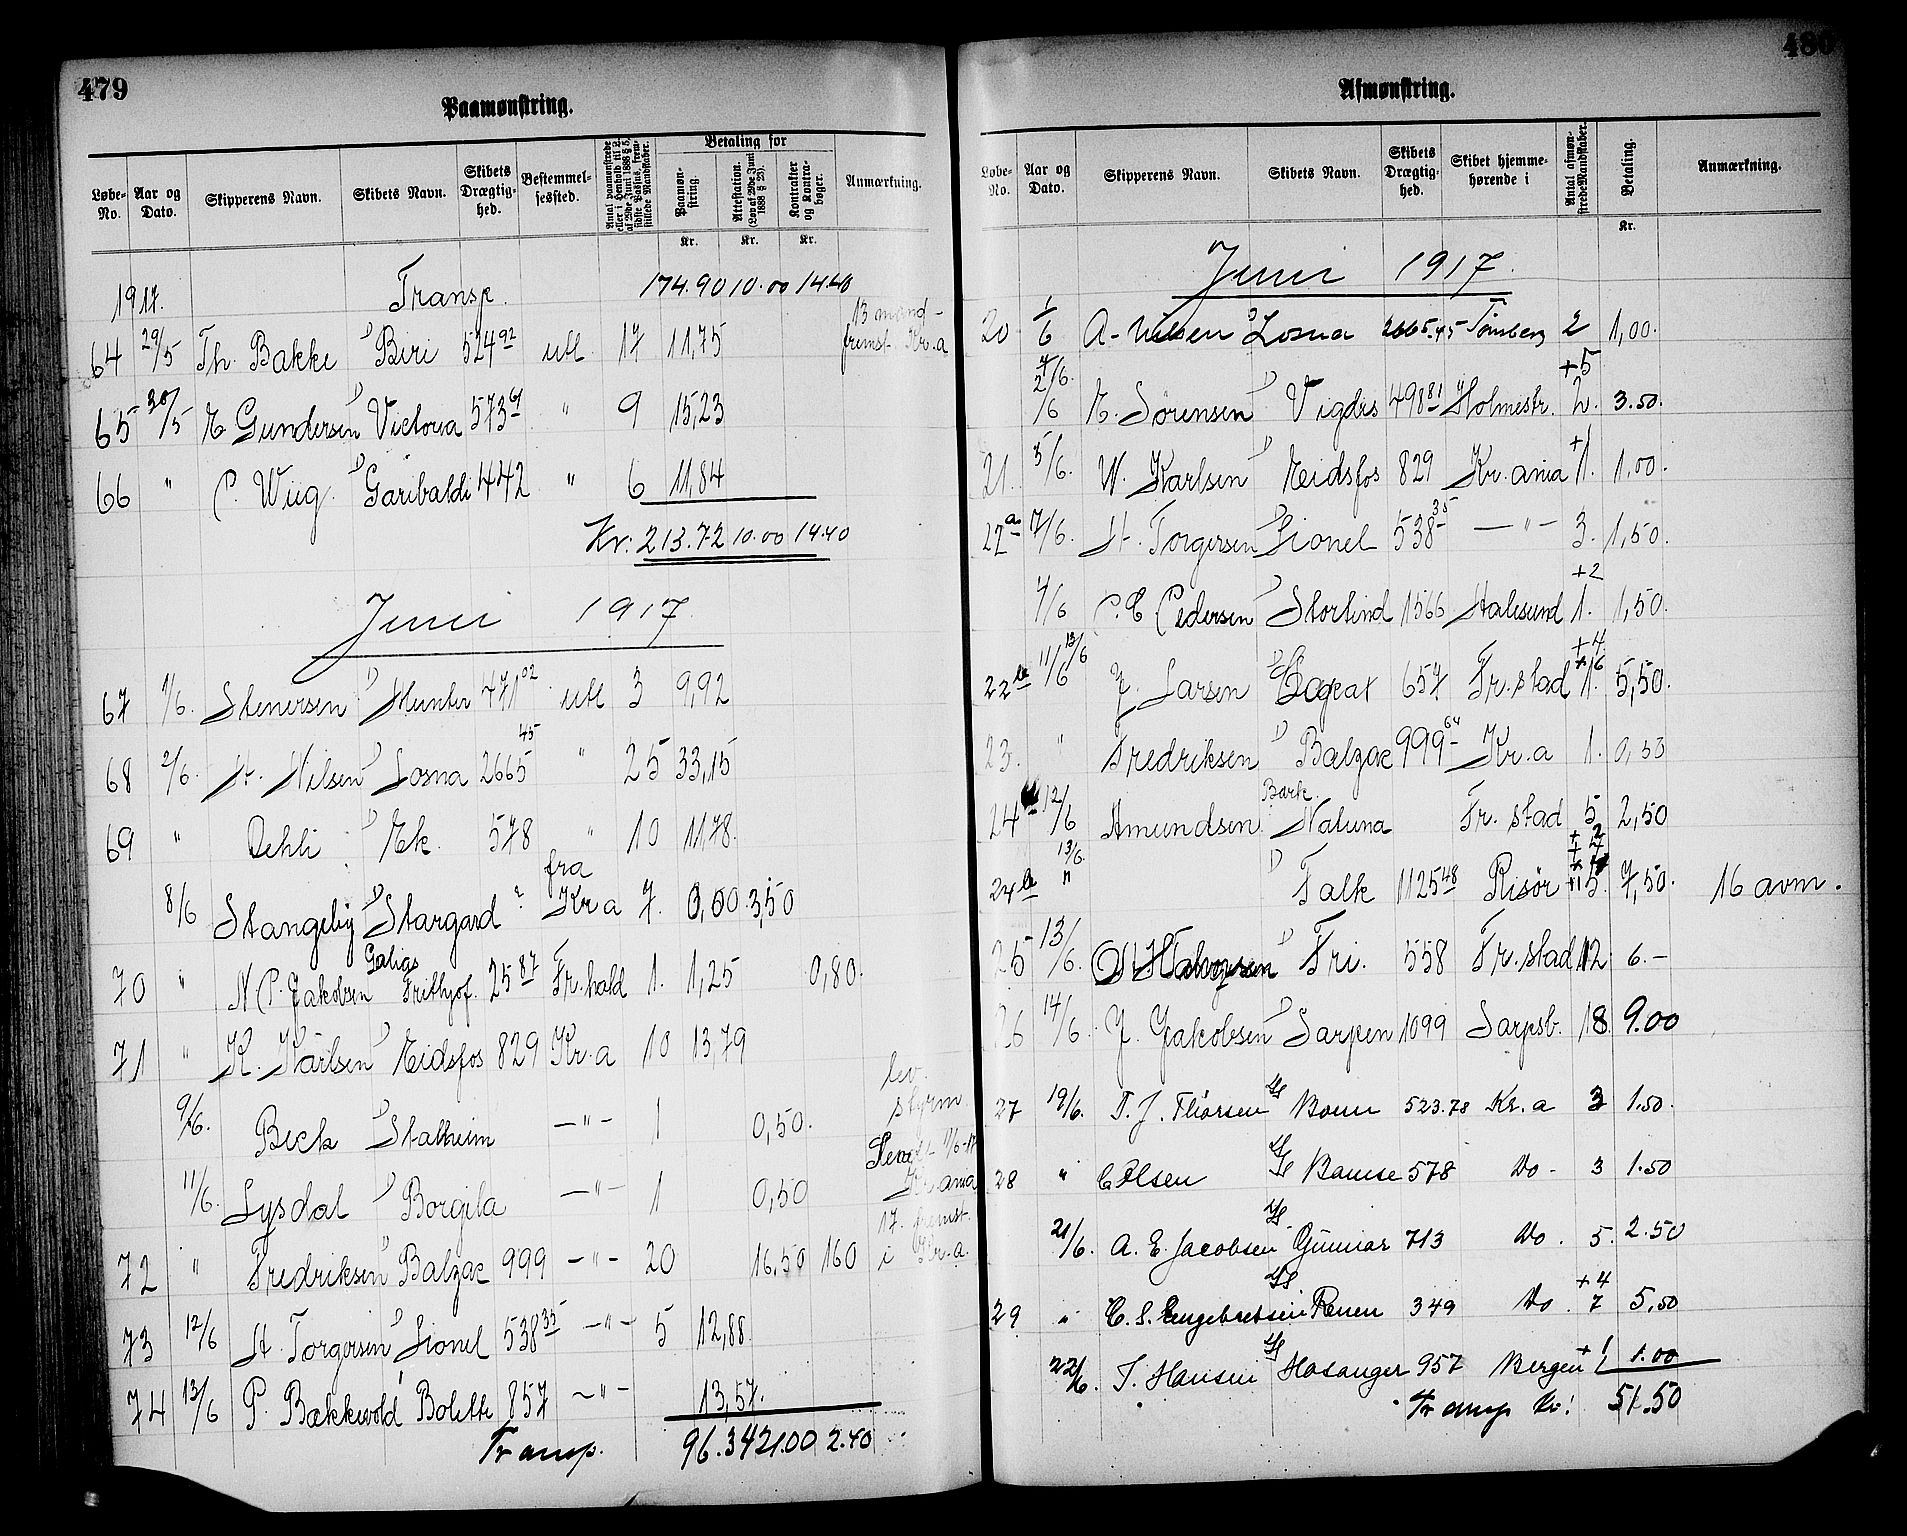 479
Paamønstring.
Løbe-No.
Aar og Dato.
Skipperens Navn.
Skibets Navn.
Skibets Drægtig-hed.
Bestemmel-sessted.
Antal paamønstrede eller i Henhold til L. af 29de Juni 1888 § 5, sidste Passus, frem-stillede Mandskaber.
Betaling for
Paamøn-string.
Attestation. (Lov af 29de Juni 1888 § 23).
Kontrakter og Kontra-bøger.
Anmærkning.
Kr. Kr. Kr.
1917. Transp. 174.90 10.00 14.40
64 29/5 Th. Bakke D Biri 524 92 utl. 17 11,75 13 mand fremst. Kr.a
65 30/5 E Gundersen D Victoria 573 " 9 15,23
66 " P. Wiig D Garibaldi 442 " 6 11,84
Kr. 213.72 10.00 14.40
Juni 1917.
67 1/6. Stenersen D Hunter 471 02 utl 3 9,92
68 2/6. A. Nilsen D Losna 2665 45 " 25 33,15
69 " Oehli D Ek. 578 " 10 11,78.
8/6 Stangeby D Stargard ? fra Kr a 7. 0,00 3,50
70 " N P. Jakobsen Galias Frithjof. 25 87 Fr.hald 1. 1,25 0,80.
71 " K. Karlsen D Eidsfos 829 Kr.a 10 13,79
9/6. Beck D Stalheim —"— 1 0,50. lev. styrm
11/6. Lysdal D Borgila —"— 1 0,50 Kr.ania
72 " Fredriksen D Balzac 999 —"— 20 16,50 160 17. fremst. i Kr.a.
73 12/6 A. Torgersen D Lionel 538 35 —"— 5 12,88.
74 13/6 P. Bækkevold D Bolette 857 —"— 13,57.
Transp. 96.34 21.00 2.40
480
Afmønstring.
Løbe-No.
Aar og Dato.
Skipperens Navn.
Skibets Navn.
Skibets Drægtig-hed.
Skibet hjemme-hørende i
Antal afmøn-strede Mandskaber.
Betaling.
Anmærkning.
Kr.
Juni 1917.
20 1/6 A. Nilsen D Losna 2665.45 Tønsberg 2 1,00.
7/6. 2/6 E. Sørensen D Vigdis 498 81 Holmestr. +5 2. 3.50.
21. 5/6. W. Karlsen D Eidsfos 829 Kr.ania +1 1. 1,00.
22 a 7/6. A. Torgersen D Lionel 538 35 —"— 3. 1,50.
4/6 P. C Pedersen D Stortind 1566 Aalesund +2 1. 1,50.
22 b 11/6 13/6 J. Larsen D 657 Fr.stad +4 +6 1. 5,50.
23. " Fredriksen D Balzac 999 64 Kr.a 1. 0,50
24 12/6 Amundsen Bark. Naluna Fr. stad 5 2,50
24 b 13/6. " D Falk 1125 48 Risør 5. 7,50. 16 avm.
25 13/6. D Fri. 558 Fr.stad 12 6.-
26 14/6. J. Jakobsen D Sarpen 1099 Sarpsb. 18 9.00
27 19/6. T. J. Thorsen D/S 523.78 Kr.a 3 1.50.
28 " C Olsen D/S Bamse 578 Do - 3 1.50
21/6. A. E. Jacobsen D/S Gunnar 713 Do. 5. 2.50
29 " C. S. Engebretsen D/S Renen 349 Do. +4 7 5,50
22/6. T. Hansen D/S Hosanger 957 Bergen +1 1 1.00
Transp Kr. 51.50